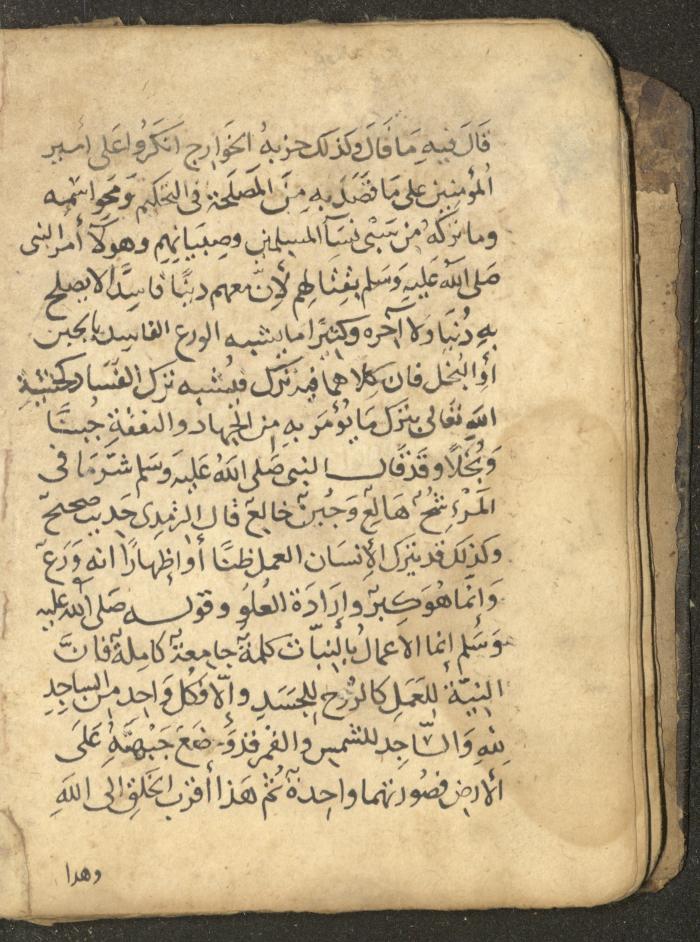 قَالَ فيهِ مَا قَالَ وكذلك حزبهُ الخَوَارِج انكَرُوا عَلى أمير
المُؤمِنِين على مَا قصَدَ بِهِ مِنَ المَصلَحَة في التحكيم وَمحو اسمه
وما تركهُ من سَبى نسَآ المسلمين وصِبيَانِهِم وهولآ أمر النبى
صَلى اللهُ عَليهِ وَسَلم بقِتَالِهم لأِنّ معهم دينًا فاسِدًا لا يصلح
بهِ دُنيَا ولا آخره وكثيرًا ما يشتبه الورع الفاسِد بالجبن
أو البُخل فان كِلاهما فيه تَرك فيُشتبه ترك الفسَاد لخشيةِ
اللهِ تعَالى بتَرك مَا يُؤمَر بِهِ من الجِهَاد والنفقةِ جُبنًا
وَبُخلاً وقد قال النبى صَلى اللهُ عَليهِ وَسَلم شَرّ مَا فى
المَرْءِ شُحٌ هَالِعٌ وَجُبنٌ خالِعٌ قال الترمذي حَدِيث صحيحٌ
وكذلك قد يترك الإنسَان العمل ظنًا أو إظهارًا انه وَرَعٌ
وَإنّما هُوَ كِبرٌ وإرَادَة العُلُو وقوله صَلى الله عليه
وَسَلم إنما الاعمالُ بالنِيّات كلمةٌ جامِعةٌ كامِلةٌ فانَّ
النِيّة لِلعَمَلِ كالرُوح لِلجَسَدِ وإلّا فكلُ وَاحِدٍ مِن الساجِدِ
لِلهِ وَالسَّاجِدِ للشَمسِ والقَمرِ قد وَضعَ جَبْهتَهُ عَلَى
الأرضِ فصُورَتهما واحِدةٌ ثُم هَذا أقرَب الخَلقِ الى اللهِ
وهذا